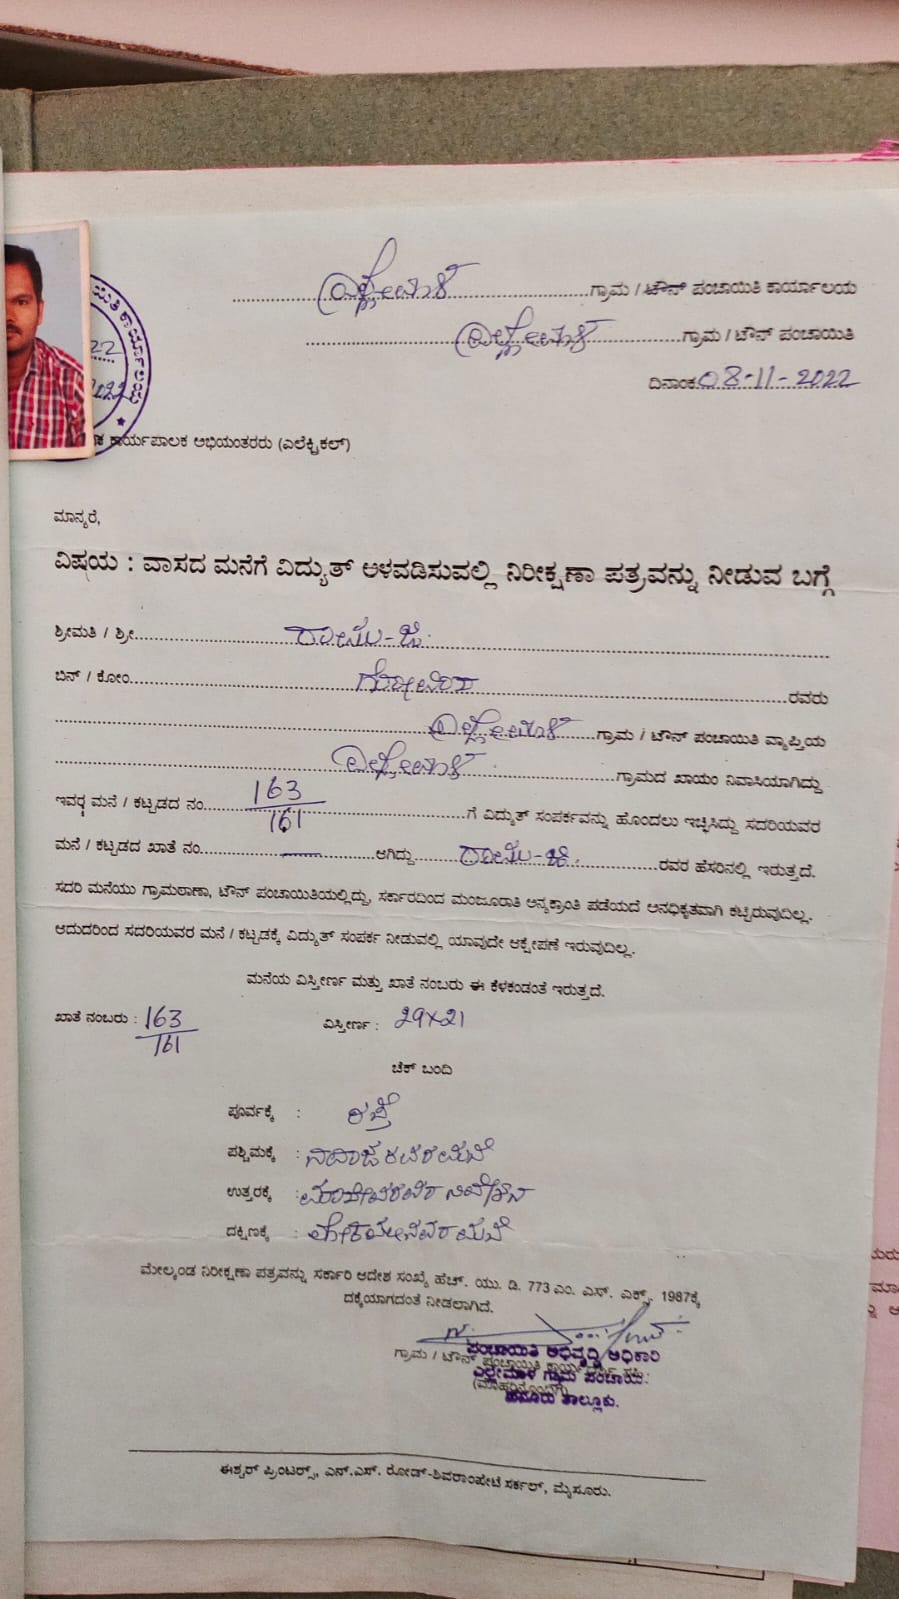 ಎಲ್ಲೇಮಾಳ ಗ್ರಾಮ / ಟೌನ್ ಪಂಚಾಯಿತಿ ಕಾರ್ಯಾಲಯ
ಎಲ್ಲೇಮಾಳ ಗ್ರಾಮ / ಟೌನ್ ಪಂಚಾಯಿತಿ
ದಿನಾಂಕ 08-11-2022
ಕಾರ್ಯಪಾಲಕ ಅಭಿಯಂತರರು (ಎಲೆಕ್ಟ್ರಿಕಲ್)
ಮಾನ್ಯರೆ,
ವಿಷಯ : ವಾಸದ ಮನೆಗೆ ವಿದ್ಯುತ್ ಅಳವಡಿಸುವಲ್ಲಿ ನಿರೀಕ್ಷಣಾ ಪತ್ರವನ್ನು ನೀಡುವ ಬಗ್ಗೆ
ಶ್ರೀಮತಿ / ಶ್ರೀ
ಬಿನ್ / ಕೋಂ ಗೋವಿಂದ ರವರು
ಎಲ್ಲೇಮಾಳ ಗ್ರಾಮ / ಟೌನ್ ಪಂಚಾಯಿತಿ ವ್ಯಾಪ್ತಿಯ
ಎಲ್ಲೇಮಾಳ ಗ್ರಾಮದ ಖಾಯಂ ನಿವಾಸಿಯಾಗಿದ್ದು
ಇವರ ಮನೆ / ಕಟ್ಟಡದ ನಂ. 163/161 ಗೆ ವಿದ್ಯುತ್ ಸಂಪರ್ಕವನ್ನು ಹೊಂದಲು ಇಚ್ಛಿಸಿದ್ದು ಸದರಿಯವರ
ಮನೆ / ಕಟ್ಟಡದ ಖಾತೆ ನಂ. — ಆಗಿದ್ದು ರವರ ಹೆಸರಿನಲ್ಲಿ ಇರುತ್ತದೆ.
ಸದರಿ ಮನೆಯು ಗ್ರಾಮಠಾಣಾ, ಟೌನ್ ಪಂಚಾಯಿತಿಯಲ್ಲಿದ್ದು, ಸರ್ಕಾರದಿಂದ ಮಂಜೂರಾತಿ ಅನ್ಯಕ್ರಾಂತಿ ಪಡೆಯದೆ ಅನಧಿಕೃತವಾಗಿ ಕಟ್ಟಿರುವುದಿಲ್ಲ.
ಆದುದರಿಂದ ಸದರಿಯವರ ಮನೆ / ಕಟ್ಟಡಕ್ಕೆ ವಿದ್ಯುತ್ ಸಂಪರ್ಕ ನೀಡುವಲ್ಲಿ ಯಾವುದೇ ಆಕ್ಷೇಪಣೆ ಇರುವುದಿಲ್ಲ.
ಮನೆಯ ವಿಸ್ತೀರ್ಣ ಮತ್ತು ಖಾತೆ ನಂಬರು ಈ ಕೆಳಕಂಡಂತೆ ಇರುತ್ತದೆ.
ಖಾತೆ ನಂಬರು : 163/161 ವಿಸ್ತೀರ್ಣ : 29×21
ಚೆಕ್ ಬಂದಿ
ಪೂರ್ವಕ್ಕೆ : ರಸ್ತೆ
ಪಶ್ಚಿಮಕ್ಕೆ : ನಾಗರಾಜರವರ ಮನೆ
ಉತ್ತರಕ್ಕೆ : ನಿವೇಶನ
ದಕ್ಷಿಣಕ್ಕೆ : ಮನೆ
ಮೇಲ್ಕಂಡ ನಿರೀಕ್ಷಣಾ ಪತ್ರವನ್ನು ಸರ್ಕಾರಿ ಆದೇಶ ಸಂಖ್ಯೆ ಹೆಚ್. ಯು. ಡಿ. 773 ಎಂ. ಎಸ್. ಎಕ್ಸ್. 1987ಕ್ಕೆ
ದಕ್ಕೆಯಾಗದಂತೆ ನೀಡಲಾಗಿದೆ.
ಪಂಚಾಯಿತಿ ಅಭಿವೃದ್ಧಿ ಅಧಿಕಾರಿ
ಗ್ರಾಮ / ಟೌನ್ ಪಂಚಾಯಿತಿ
ಎಲ್ಲೇಮಾಳ ಗ್ರಾಮ ಪಂಚಾಯಿತಿ
ಹನೂರು ತಾಲ್ಲೂಕು.
ಈಶ್ವರ್ ಪ್ರಿಂಟರ್ಸ್, ಎನ್.ಎಸ್. ರೋಡ್-ಶಿವರಾಂಪೇಟೆ ಸರ್ಕಲ್, ಮೈಸೂರು.